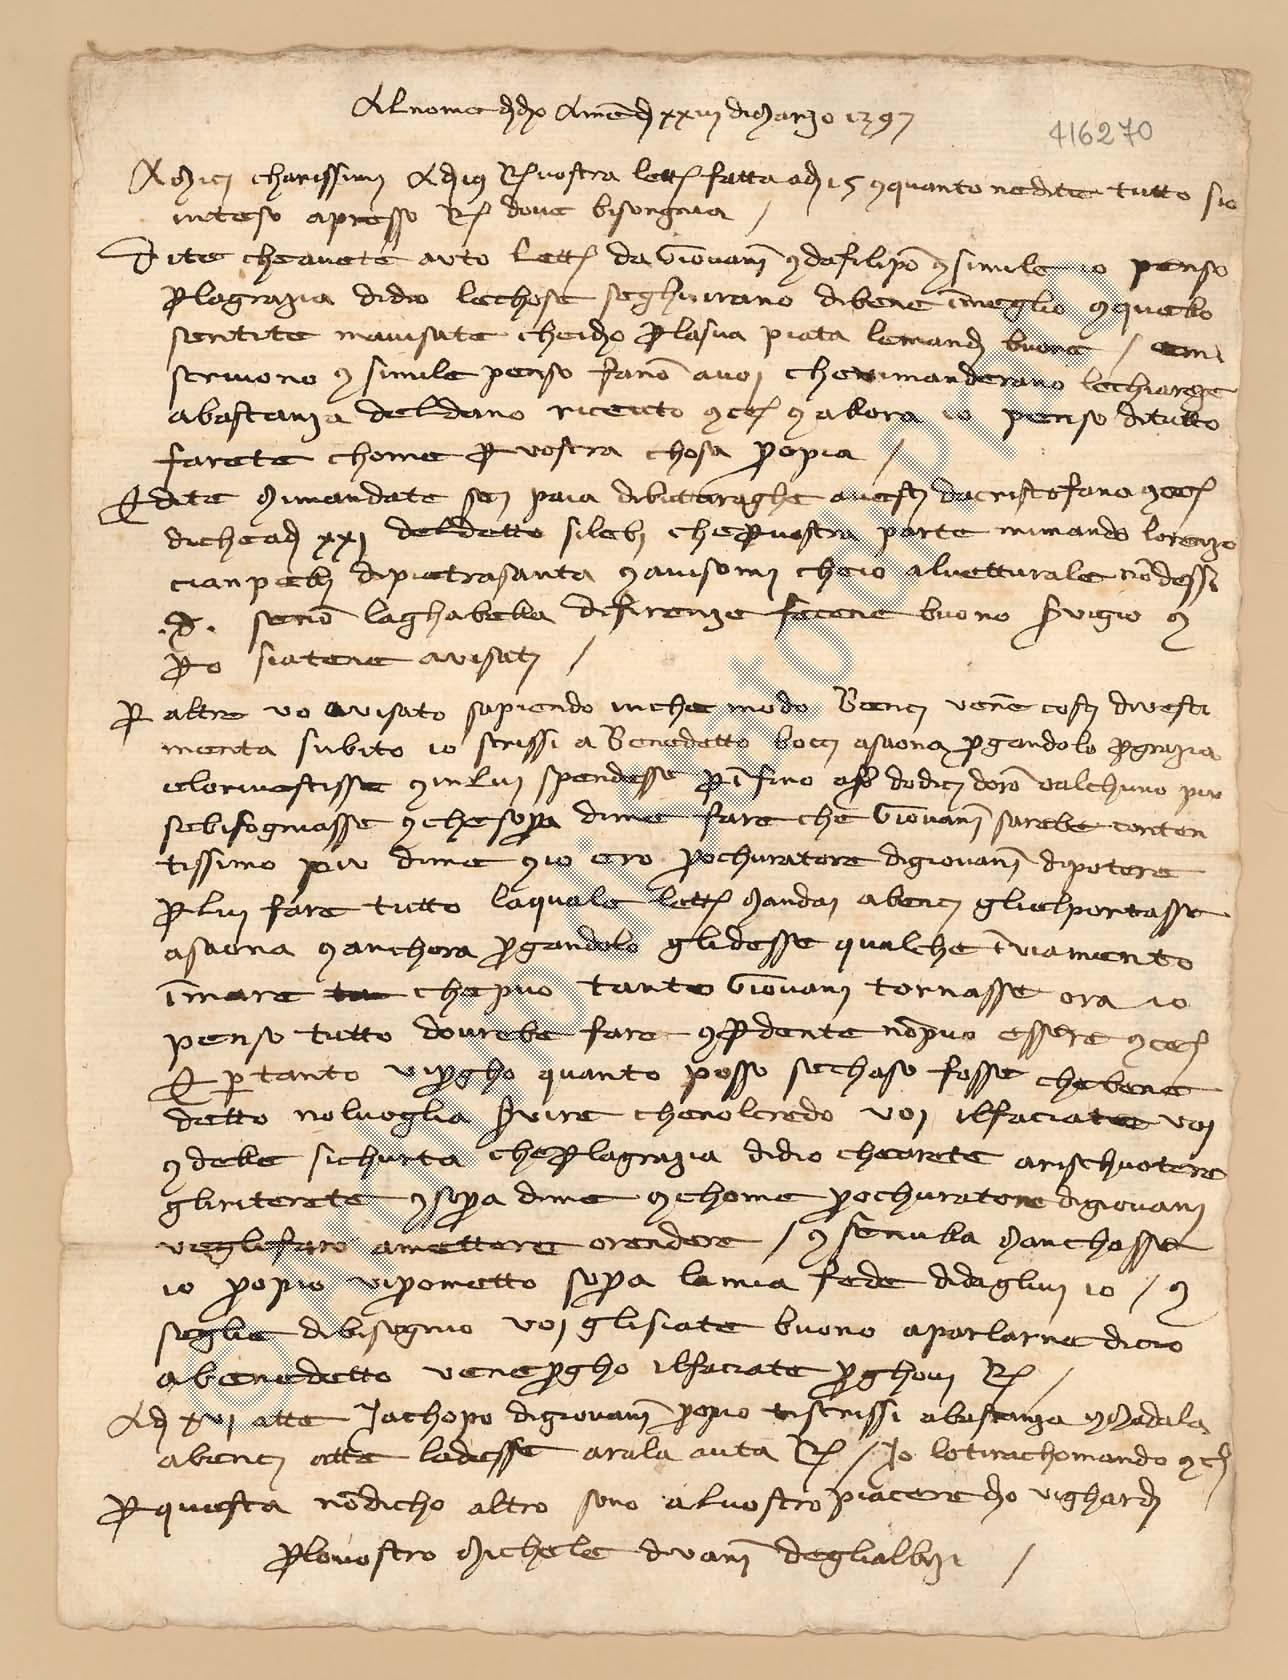 Al nome di dio Amen dì xxiii di Marzo 1397
416270
Amici charissimi Adì 19 R vostra lett fatta adì 15 e quanto ne dite tutto sic
inteso apresso R dove bisongnia /
Dite che avete auto lett da Giovani e da filipo e simile io penso
p la grazia di dio le chose seghuirano di bene i meglio e quello
sentite mavisate che idio p la sua piata le mandi buone / 
scrivono e simile penso fano a voi che vi manderano le chiareze
a bastanza del dano ricevto e ce e alora io penso di tutto
farete chome p vostra chosa propia /
E dite Mi mandate sei paia di buttaraghe avesti da cristofano e ce
di che adì xxi del detto si lebi che p vostra parte mi mando lorenzo
cianpelli di pietrasanta e avisomi che io al vetturale no dessi
.d. seno la ghabella di firenze fecene buono svigio e
po siatene avisati /
P altre vo avisato sapiendo in che modo Benci vene costi di vesti
menta subito io scrissi a Benedetto bocci a saona pgandolo p grazia
e lo rivestisse e in lui spendesse p ifino a f dodici doro valchuno piu
se bisogniasse e che sopa di me fare che Giovani sarebe conten
tissimo piu di me e io ero pochuratore di giovani di potere
p lui fare tutto la quale lett Mandai a benci gliel portasse
a saona e anchora pgandolo gli desse qualche iviamento
i mare che puo tanto Giovani tornasse ora io
penso tutto dovrebe fare e pdente no puo essere e ce
E p tanto vi pgho quanto posso se chaso fosse che bene
detto nol voglia svire che nol credo voi il faciate voi
e dele sichurta che p la grazia di dio che arete a rischuotere
gli riterete e sopa di me e chome pochuratore di giovani
ve gle faro a mettere o rendere / e se nulla Manchasse
io popio vi pometto sopa la mia fede di dagluii io / e
se glie di bisogno voi gli siate buono a parlarne di cio
a benedetto vene pgho il faciate pghovi R /
Adì xvi a tte Jachopo di giovani popio ti scrissi a bastanza e Mandala
a benci a tte la desse arala auta R / Io lo ti rachomando e ce
P questa no dicho altro sono al vostro piacere dio vi ghardi
P lo vostro Michele di vani degli albizi /